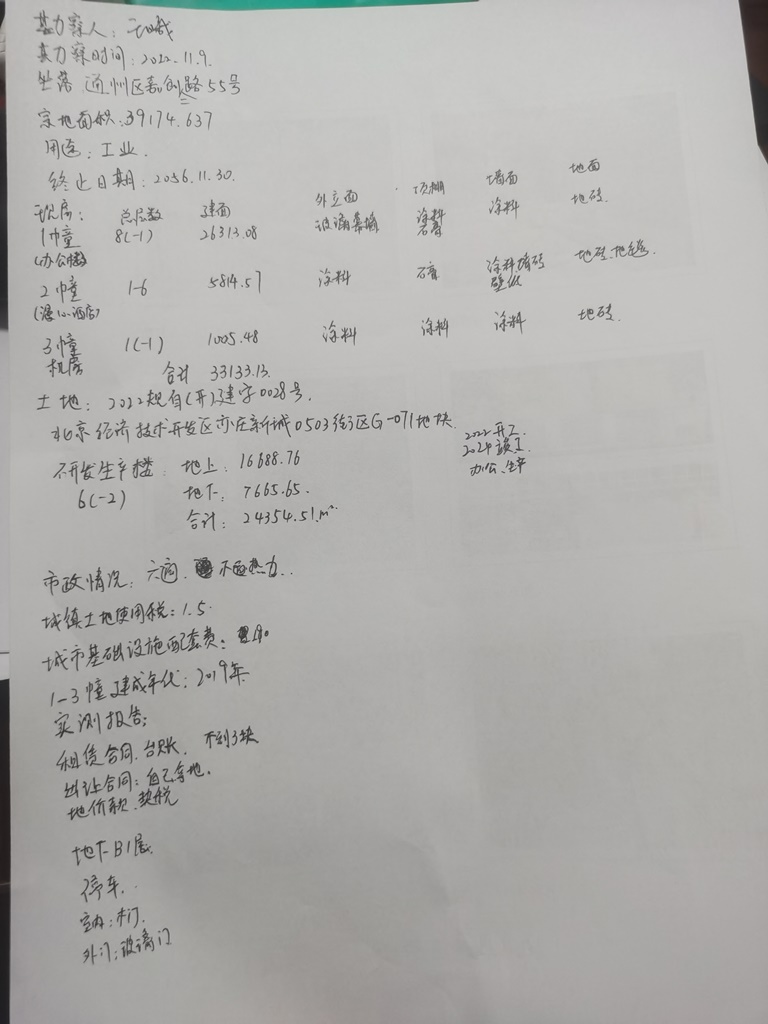 勘察人：
勘察时间：2022.11.9.
坐落 通州区嘉创路55号
宗地面积：39174.637
用途：工业.
终止日期：2056.11.30.
现房： 总层数 建面 外立面 顶棚 墙面 地面
1幢 8(-1) 26313.08 玻璃幕墙 涂料 石膏 涂料 地砖.
(办公楼)
2幢 1-6 5814.57 涂料 石膏 涂料墙砖 壁纸 地砖.地毯.
酒店)
3幢 1(-1) 1005.48 涂料 涂料 涂料 地砖.
机房 合计 33133.13.
土地：2022规自(开)建字0028号.
北京经济技术开发区亦庄新城0503街区G-071地块.
2022开工
2024竣工
办公.生产
开发生产楼 地上：16688.76
6(-2) 地下：7665.65.
合计：24354.51.m²
市政情况：六通. 不含热力..
城镇土地使用税：1.5.
城市基础设施配套费：
1-3幢建成年代：2019年.
实测报告：
租赁合同.台账. 不到3块
出让合同：自己拿地.
地价款.契税
地下B1层.
停车..
室内：木门.
外门：玻璃门